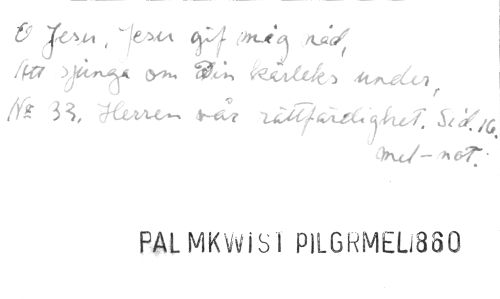 O Jesu, Jesu gif mig nåd,
Att sjunga om Din kärleks under,
No 33. Herren vår rättfärdighet. Sid. 16.
mel-not.
PALMKWIST PILGRMEL1860